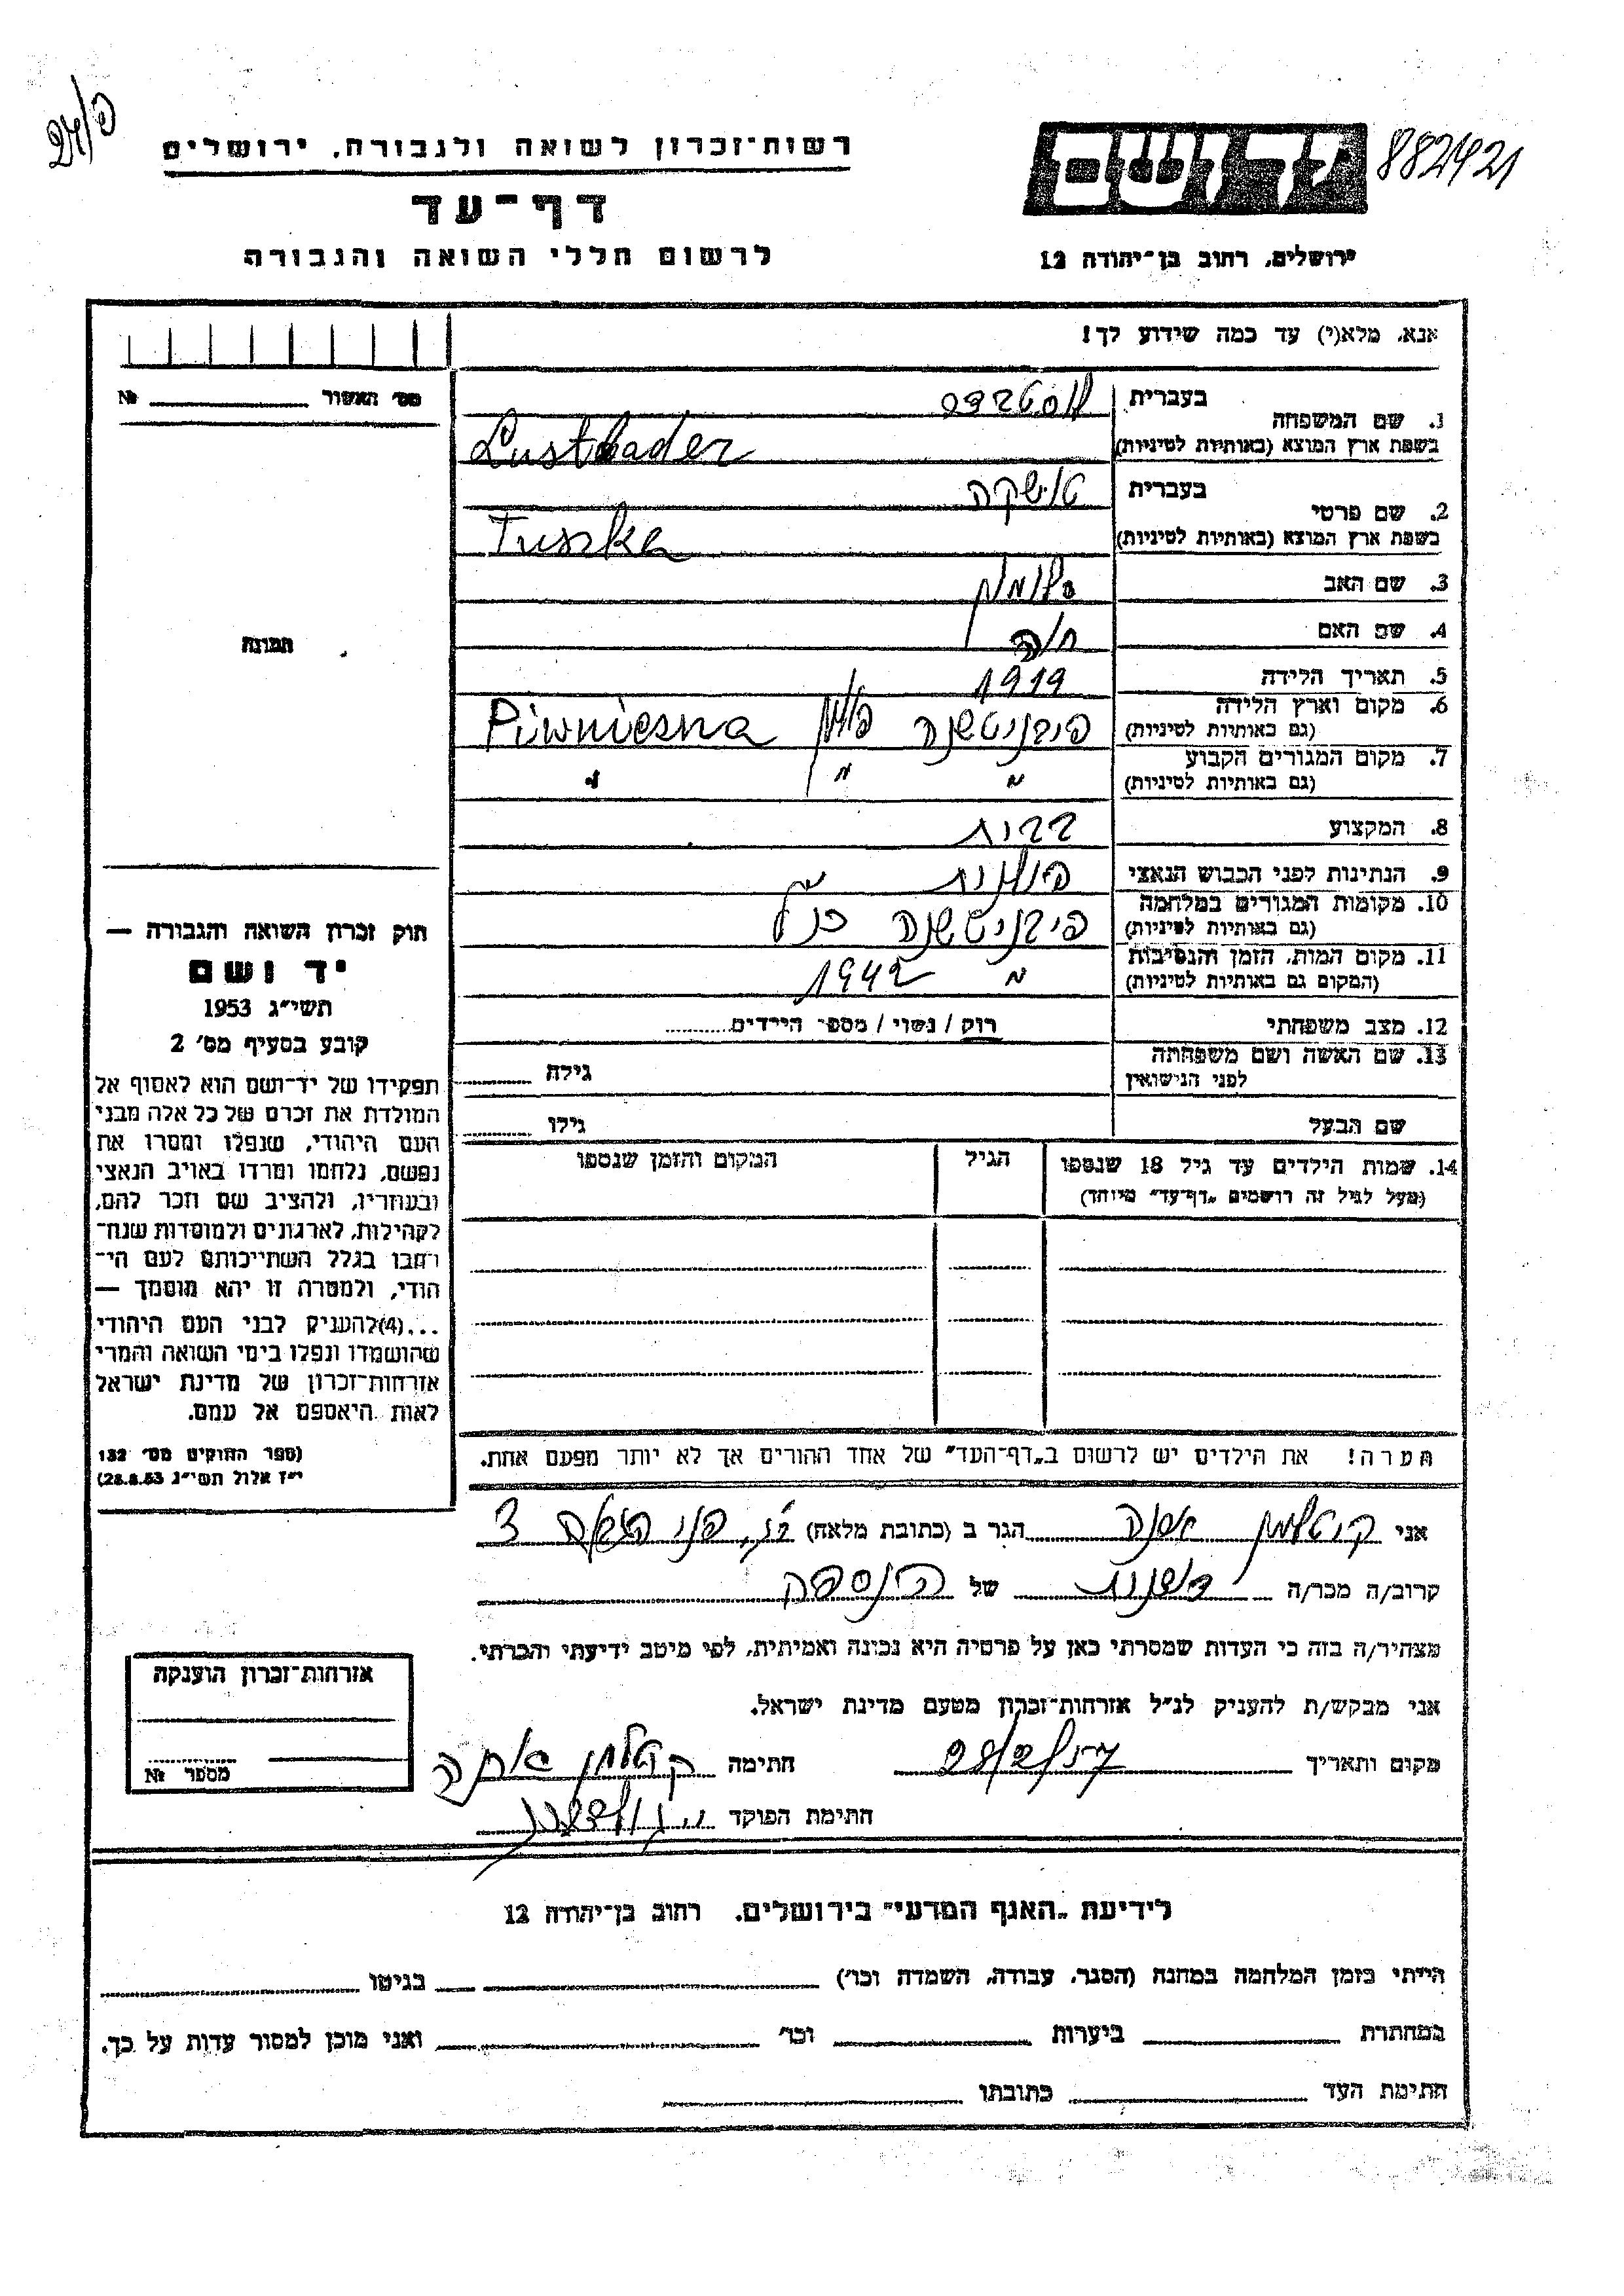 882421
רשות־זכרון לשואה ולגבורה, ירושלים
דף־עד
לרשום חללי השואה והגבורה
ירושלים, רחוב בן־יהודה 12
אנא, מלא(י) עד כמה שידוע לך!
מס׳ האשור № 
1. שם המשפחה
בעברית
בשפת ארץ המוצא (באותיות לטיניות) Lustbader
2. שם פרטי
בעברית טושקה
בשפת ארץ המוצא (באותיות לטיניות) Tuszka
3. שם האב
4. שם האם חיה
5. תאריך הלידה 1919
6. מקום וארץ הלידה (גם באותיות לטיניות) פיבניטשנה פולין Piwniczna
7. מקום המגורים הקבוע (גם באותיות לטיניות) " " "
8. המקצוע
9. הנתינות לפני הכבוש הנאצי פולנית
10. מקומות המגורים במלחמה (גם באותיות לטיניות) פיבניטשנה כנ״ל
11. מקום המות, הזמן והנסיבות (המקום גם באותיות לטיניות) " 1942
12. מצב משפחתי רוק / נשוי / מספר הילדים
13. שם האשה ושם משפחתה לפני הנישואין גילה
שם הבעל גילו
14. שמות הילדים עד גיל 18 שנספו (מעל לגיל זה רושמים „דף־עד" מיוחד)
הגיל
המקום והזמן שנספו
הערה! את הילדים יש לרשום ב„דף־העד" של אחד ההורים אך לא יותר מפעם אחת.
תמונה
חוק זכרון השואה והגבורה —
יד ושם
תשי״ג 1953
קובע בסעיף מס׳ 2
תפקידו של יד־ושם הוא לאסוף אל
המולדת את זכרם של כל אלה מבני
העם היהודי, שנפלו ומסרו את
נפשם, נלחמו ומרדו באויב הנאצי
ובעוזריו, ולהציב שם וזכר להם,
לקהילות, לארגונים ולמוסדות שנח־
רבו בגלל השתייכותם לעם הי־
הודי, ולמטרה זו יהא מוסמך —
...(4)להעניק לבני העם היהודי
שהושמדו ונפלו בימי השואה והמרי
אזרחות־זכרון של מדינת ישראל
לאות היאספם אל עמם.
(ספר החוקים מס׳ 132
י״ז אלול תשי״ג 28.8.53)
אני הגר ב (כתובת מלאה)
קרוב/ה מכר/ה שכנות של הנספה
מצהיר/ה בזה כי העדות שמסרתי כאן על פרטיה היא נכונה ואמיתית, לפי מיטב ידיעתי והכרתי.
אני מבקש/ת להעניק לנ״ל אזרחות־זכרון מטעם מדינת ישראל.
מקום ותאריך 28/2/57 חתימה
חתימת הפוקד
אזרחות־זכרון הוענקה
מספר №
לידיעת „האגף המדעי" בירושלים, רחוב בן־יהודה 12
הייתי בזמן המלחמה במחנה (הסגר, עבודה, השמדה וכו׳) בגיטו
במחתרת ביערות וכו׳ ואני מוכן למסור עדות על כך.
חתימת העד כתובתו